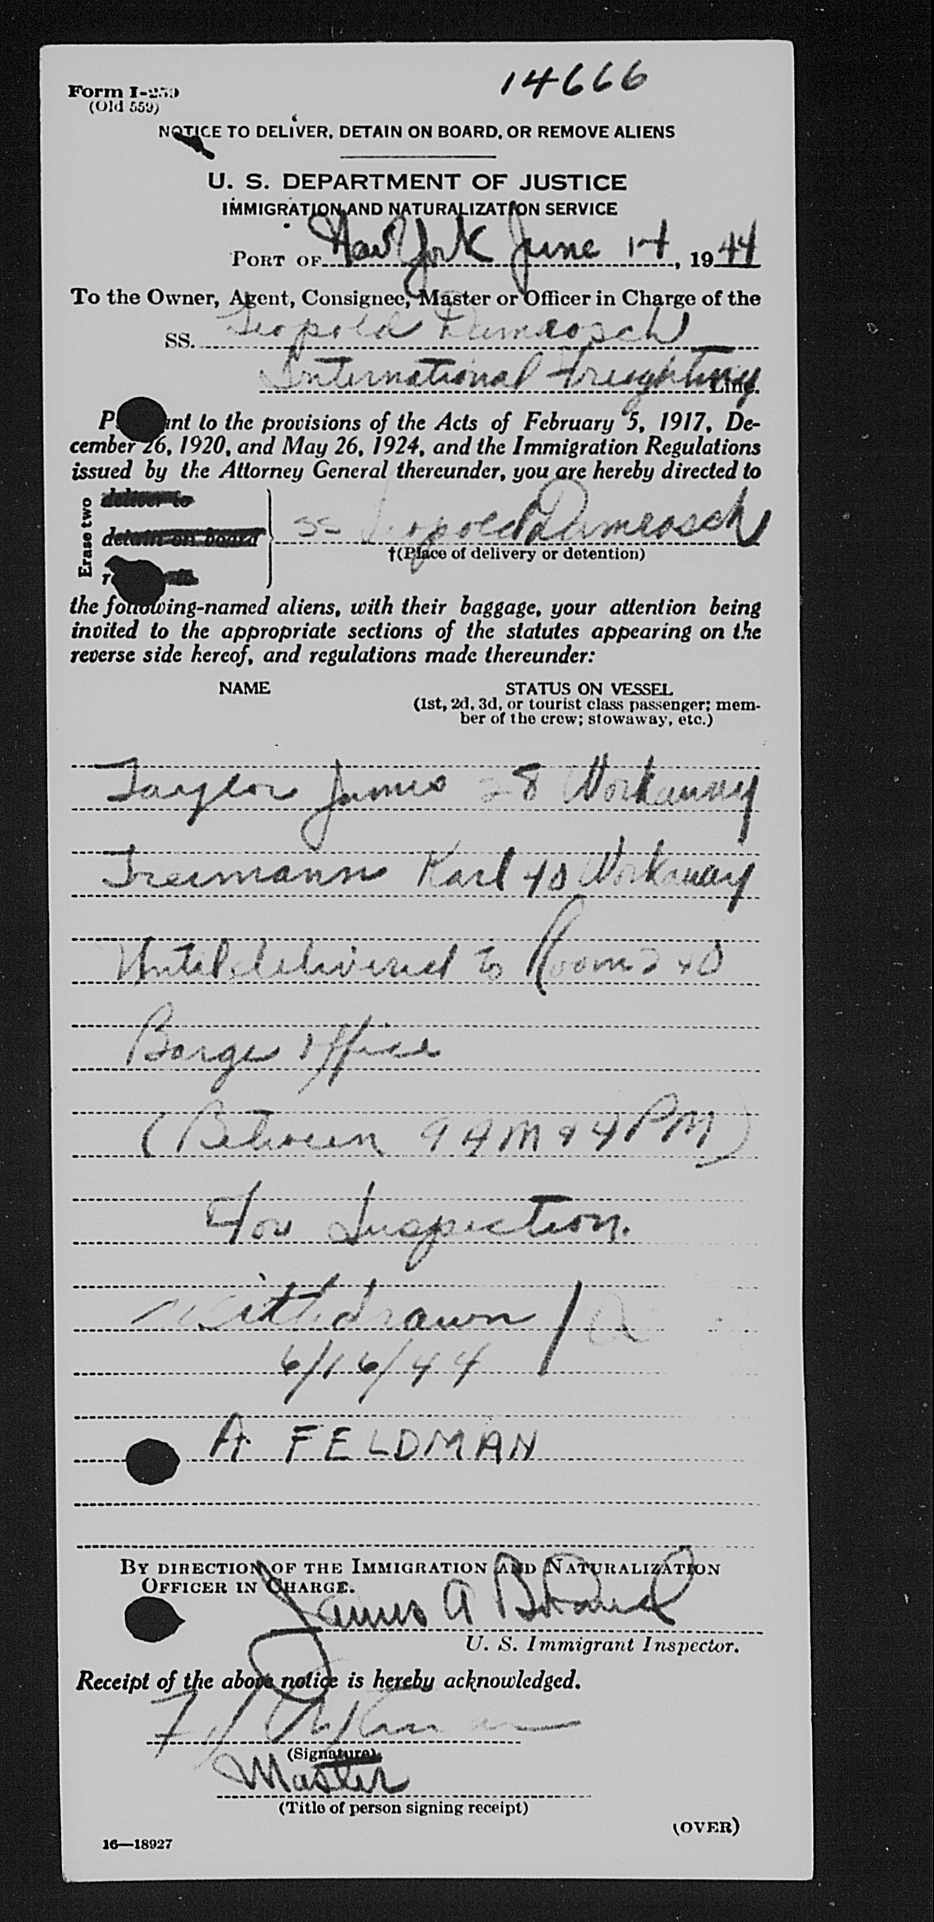 14666
Form I-259
(Old 559)
NOTICE TO DELIVER, DETAIN ON BOARD, OR REMOVE ALIENS
U. S. DEPARTMENT OF JUSTICE
IMMIGRATION AND NATURALIZATION SERVICE
PORT OF New York June 14, 1944
To the Owner, Agent, Consignee, Master or Officer in Charge of the
SS. Leopold Damrosch
International Freighting Line.
P ant to the provisions of the Acts of February 5, 1917, De-
cember 26, 1920, and May 26, 1924, and the Immigration Regulations
issued by the Attorney General thereunder, you are hereby directed to
Erase two
deliver to
detain on board SS Leopold Damrosch
†(Place of delivery or detention)
the following-named aliens, with their baggage, your attention being
invited to the appropriate sections of the statutes appearing on the
reverse side hereof, and regulations made thereunder:
NAME STATUS ON VESSEL
(1st, 2d, 3d, or tourist class passenger; mem-
ber of the crew; stowaway, etc.)
Taylor James 28 Workaway
Treimann Karl 40 Workaway
Until delivered to Room 240
Barge Office
(Between 9 AM & 4 PM)
For Inspection.
Withdrawn /
6/16/44
A. FELDMAN
BY DIRECTION OF THE IMMIGRATION AND NATURALIZATION
OFFICER IN CHARGE.
James A
U. S. Immigrant Inspector.
Receipt of the above notice is hereby acknowledged.
(Signature)
Master
(Title of person signing receipt)
(OVER)
16—18927